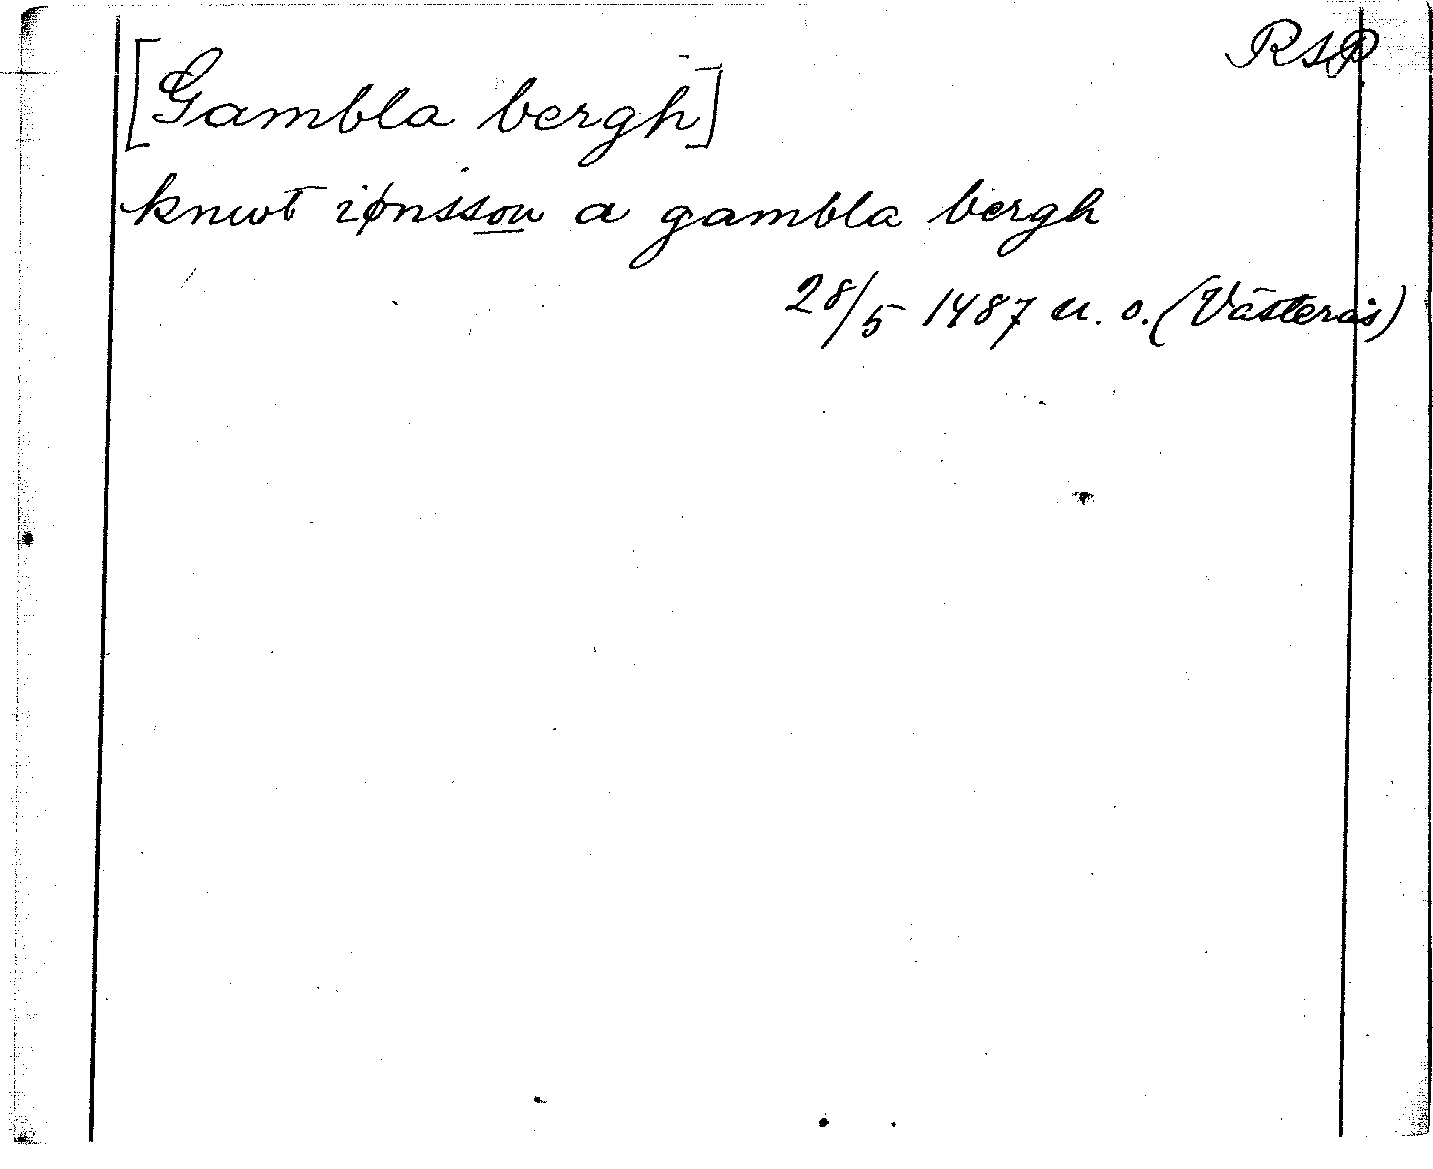 RSP
[Gambla bergh]
knwt iønsson a gambla bergh
28/5 1487 u. o. (Västerås)